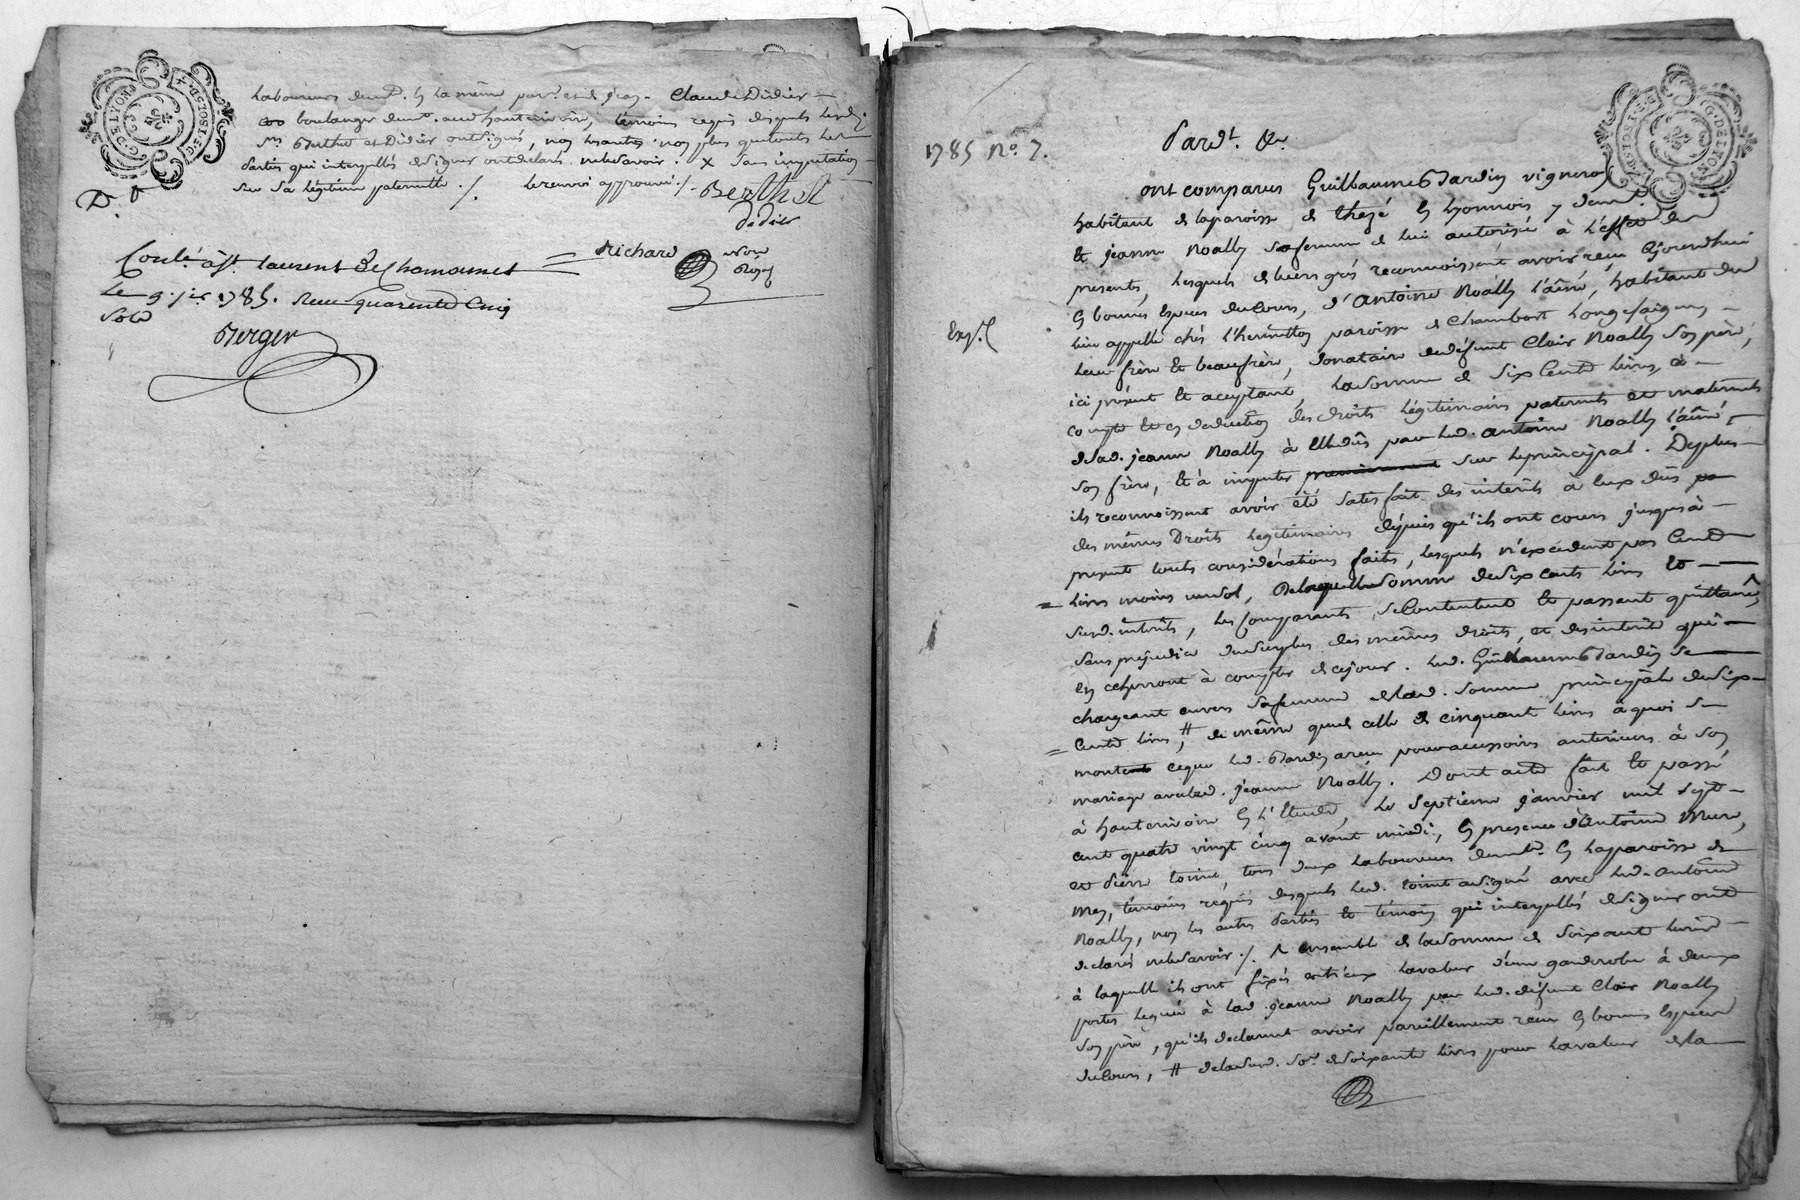 G. DE LYON
5 S. D. POSTES
Laboureurs demt. en la même parsse et de jean. Claude Didier
boulanger demt. aud hauterivoire, témoins requis desquels lesd.
srs Berthet et Didier ont signés, non les autres non plus que toutes les
parties qui interpellés de signer ont déclaré ne le savoir. x sans imputation
sur sa légitime paternelle ./. Le renvoi approuvé ./. Berthet
D. Didier
Richard
Conlé. à St. Laurent de Chamousset
Le 9. jer. 1785. Reçu quarente Cinq
Sols
Berger
G. DE LYON
1785 No. 7.
Pardt. &c.
ont comparu Guillaume Bardin vigneron
habitant de la paroisse de thezé en Lyonnois y demt.
et jeanne Noally sa femme de lui autorisée à l'effet des
presents, lesquels de leurs grés reconnoissent avoir reçu ajourdhui
en bonnes Espèces du Cours, d'Antoine Noally l'aîné, habitant du
lieu appellé chés l'hermitton paroisse de Chambost Longesaigne,
Exp.
Leur frère et beaufrère, donataire dudéfunt Clair Noally son père,
ici présent et aceptant, la somme de six Cents Livres, à
compte et en deduction des droits Légitimaires paternels et maternels
de lad. jeanne Noally à Elle dûs par led. antoine Noally l'aîné,
son frère, et à imputer premierement sur le principal. De plus
ils reconnoissent avoir été satisfait des interêts à Eux dûs
des mêmes Droits Legitimaires depuis qu'ils ont cours jusques à
present toutes considérations faites, lesquels n'excedent pas Cent
Livres moins un sol, De laquelle somme de six cents Livres et
susd. intérêts, les Comparants se Contentent et passent quittance,
sans prejudice du surplus des mêmes droits, et des interêts qui
en cherront à compter de cejour. Led. Guillaume Bardin se
chargeant envers sa femme de lad. somme principale de six
Cents Livres, # de même que de celle de cinquante Livres à quoi se
monte ce que led. Bardin a reçu pour accessoires anterieurs à son
mariage avec lad. jeanne Noally. Dont acte fait et passé
à hauterivoire En l'Etude, Le septieme janvier mil sept
cent quatre vingt cinq avant midi, En presence d'Antoine Mure,
et pierre Coint, tous deux Laboureurs demt. En la paroisse de
Mey, témoins requis desquels led. Coint a signé avec led. antoine
Noally, non les autres parties et témoin qui interpellés de signer ont
declaré ne le savoir ./. # ensemble de la somme de soixante Livres
à laquelle ils ont fixés entr'eux la valeur d'une garderobe à deux
portes Leguée à lad. jeanne Noally par led. défunt Clair Noally
son père, qu'ils declarent avoir pareillement reçu En bonnes Espèces
du Cours, # de la susd. so.e de soixante Livres pour la valeur de la